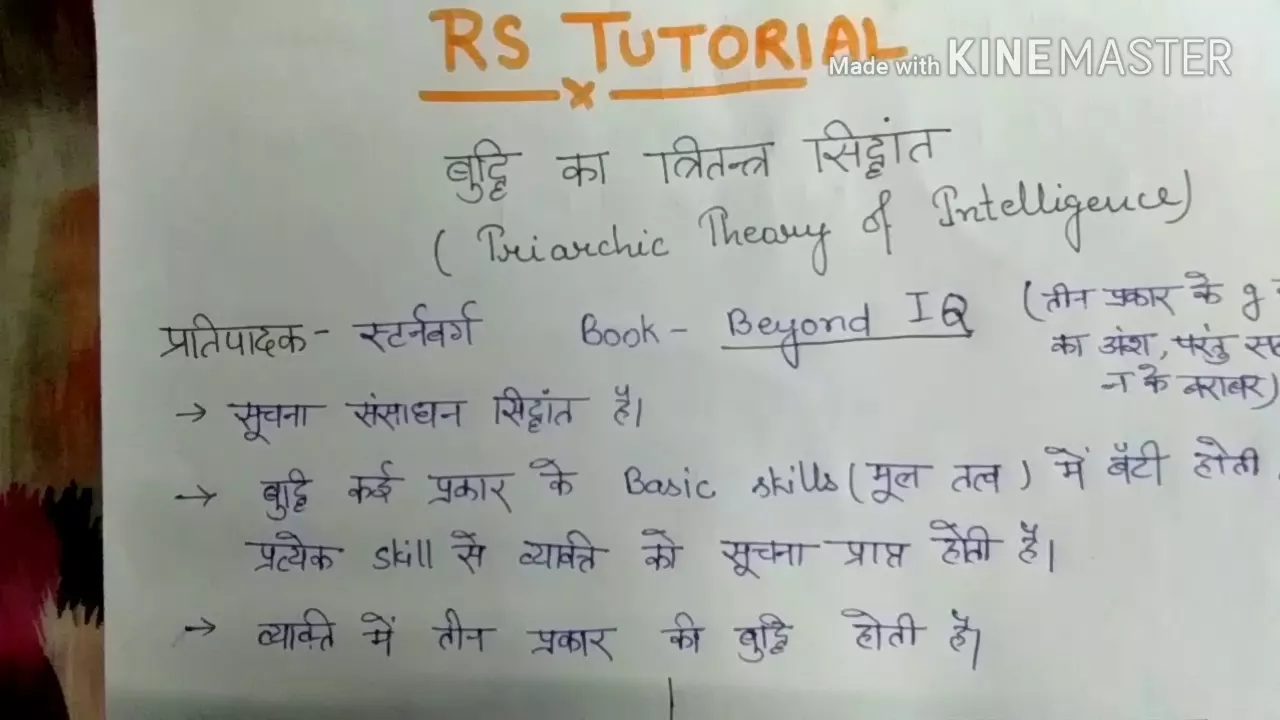 RS TUTORIAL
Made with KINEMASTER
बुद्धि का त्रितन्त्र सिद्धांत
(Triarchic Theary of Intelligence)
प्रतिपादक - स्टर्नबर्ग Book - Beyond IQ
(तीन प्रकार के g
का अंश, परंतु
न के बराबर)
→ सूचना संसाधन सिद्धांत है।
→ बुद्धि कई प्रकार के Basic skills (मूल तत्व) में बँटी होती
प्रत्येक skill से व्यक्ति को सूचना प्राप्त होती है।
→ व्यक्ति में तीन प्रकार की बुद्धि होती है।